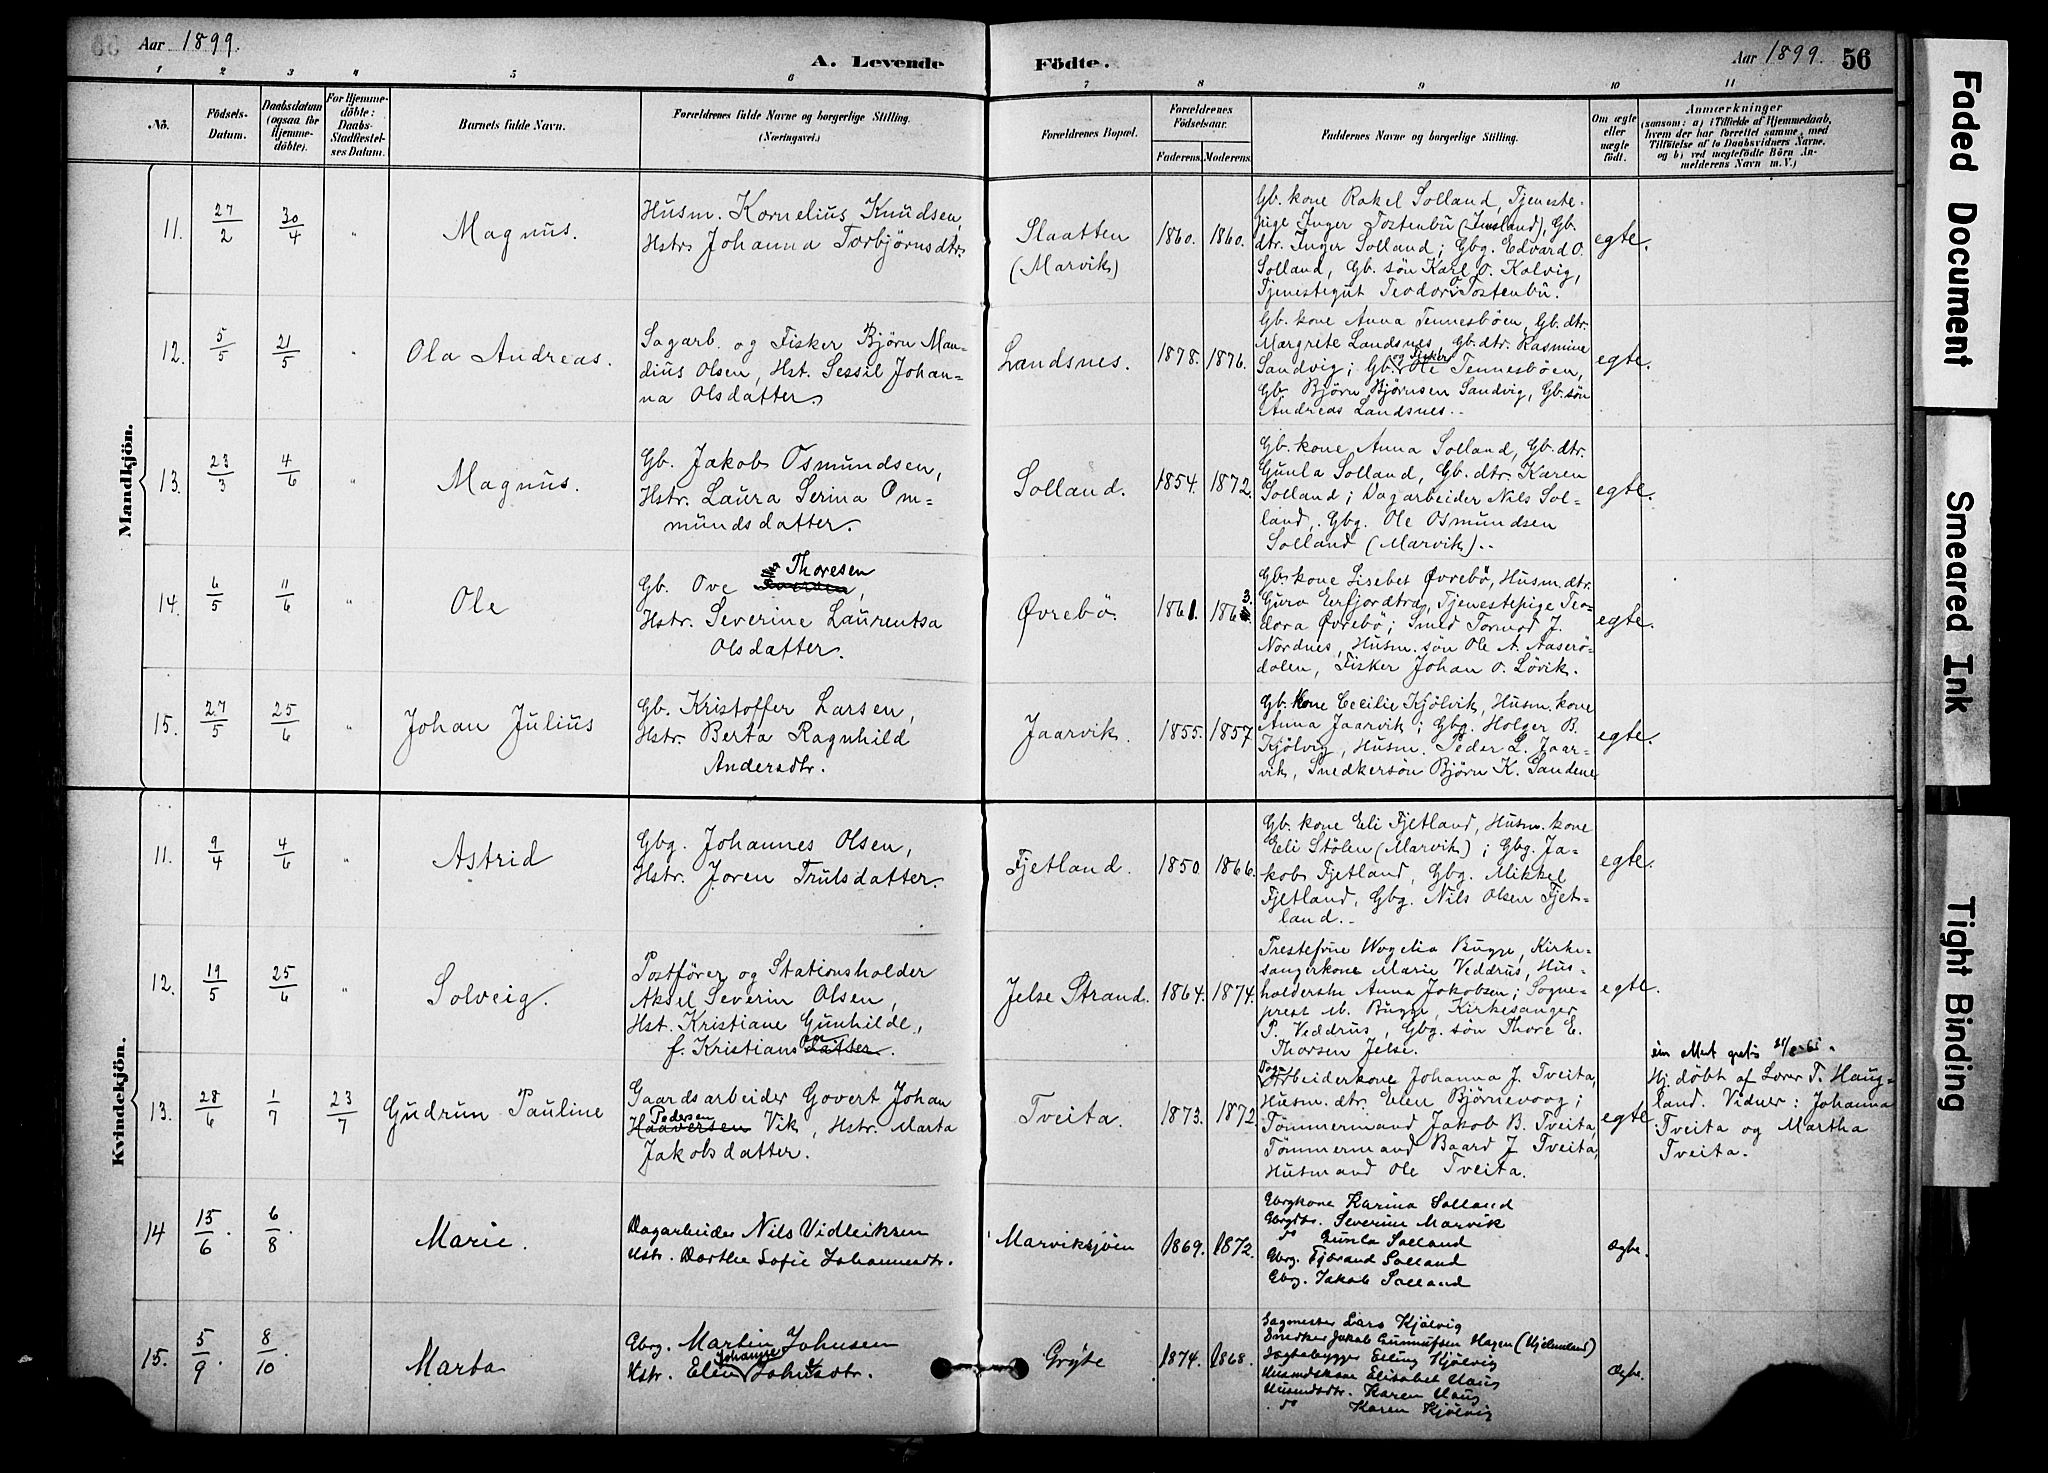 Aar 1899.
A. Levende Födte.
Aar 1899. 56
1 2 3 4 5 6 7 8 9 10 11
No.
Födsels-
Datum.
Daabsdatum
(ogsaa for
Hjemme-
döbte).
For Hjemme-
döbte:
Daabs-
Stadfæstel-
ses Datum.
Barnets fulde Navn.
Forældrenes fulde Navne og borgerlige Stilling.
(Næringsvei.)
Forældrenes Bopæl.
Forældrenes
Födselsaar.
Faderens. Moderens.
Faddernes Navne og borgerlige Stilling.
Om ægte
eller
uægte
födt.
Anmærkninger
(saasom: a) i Tilfælde af Hjemmedaab,
hvem der har forrettet samme, med
Tilföielse af to Daabsvidners Navne,
og b) ved uægtefödte Börn An-
melderens Navn m. V.)
Mandkjön.
11.
27/2
30/4
"
Magnus.
Husm. Kornelius Knudsen,
Hstr. Johanna Torbjörnsdtr.
Slaatten
(Marvik)
1860. 1860.
Gb. kone Rakel Solland, Tjeneste-
pige Inger Tostenbu (Imsland), Gb.
dtr. Inger Solland; Gbg. Edvard O.
Solland, Gb. sön Karl O. Kolvig,
Tjenestegut Teodor Tostenbu.
egte.
12.
5/5
21/5
"
Ola Andreas.
Sagarb. og Fisker Björn Man-
dius Olsen, Hst. Sessil Johan-
na Olsdatter.
Landsnes.
1878. 1876.
Gb. kone Anna Tennesböen, Gb. dtr.
Margrete Landsnes, Gb. dtr. Rasmine
Sandvig; Gb. og Fisker Ole Tennesböen,
Gb. Björn Björnsen Sandvig, Gb. sön
Andreas Landsnes.
egte.
13.
23/3
4/6
"
Magnus.
Gb. Jakob Osmundsen,
Hstr. Laura Serina Om-
mundsdatter.
Solland.
1854. 1872.
Gb. kone Anna Solland, Gb. dtr.
Gunla Solland, Gb. dtr. Karen
Solland; Dagarbeider Nils Sol-
land, Gbg. Ole Osmundsen
Solland (Marvik).
egte.
14.
6/5
11/6
"
Ole
Gb. Ove Thoresen,
Hstr. Severine Laurentsa
Olsdatter.
Øvrebö.
1861. 1863.
Gb. kone Lisebet Øvrebö, Husm. dtr.
Guro Erfjordtra, Tjenestepige Teo-
dora Øvrebö; Smed Tormod J.
Nordnes, Husm. sön Ole A. Aaserö-
dalen, Fisker Johan O. Lövik.
egte.
15.
27/5
25/6
"
Johan Julius
Gb. Kristoffer Larsen,
Hstr. Berta Ragnhild
Andersdtr.
Jaarvik.
1855. 1857.
Gb. kone Cecilie Kjölvik, Husm. kone
Anna Jaarvik; Gbg. Holger B.
Kjölvig, Husm. Peder L. Jaar-
vik, Snedkersön Björn K. Sandene
egte.
Kvindekjön.
11.
9/4
4/6
"
Astrid
Gbg. Johannes Olsen,
Hstr. Joren Trulsdatter.
Fjetland.
1850. 1866.
Gb. kone Eli Fjetland, Husm. kone
Eli Stölen (Marvik); Gbg. Ja-
kob Fjetland, Gbg. Mikkel
Fjetland, Gbg. Nils Olsen Fjet-
land.
egte.
12.
19/5
25/6
"
Solveig.
Postförer og Stationsholder
Aksel Severin Olsen,
Hst. Kristiane Gunhilde,
f. Kristiansdatter.
Jelse Strand.
1864. 1874.
Prestefrue Wogelia Bugge, Kirke-
sangerkone Marie Veddrus, Hus-
holderske Anna Jakobsen; Sogne-
prest M. Bugge, Kirkesanger
P. Veddrus, Gbg. sön Thore E.
Thorsen Jelse.
egte.
13.
28/6
1/7
23/7
Gudrun Pauline
Gaardsarbeider Govert Johan
Haaversen Pedersen Vik, Hstr. Marta
Jakobsdatter.
Tveita.
1873. 1872
Arbeiderkone Johanna J. Tveita,
Husm. dtr. Elen Björnevoog;
Tömmermand Jakob B. Tveita,
Tömmermand Baard J. Tveita,
Husmand Ole Tveita.
egte
Hj. döbt af Lærer T. Haug-
land. Vidner: Johanna
Tveita og Martha
Tveita.
14
15/6.
6/8.
Marie.
Dagarbeider Nils Vidleiksen
Hstr. Dorthe Sofie Johannesdtr.
Marviksjöen
1869. 1872.
Gbrgkone Karina Solland
Gbrgdtr. Severine Marvik
do Gunla Solland
Gbrg. Tjöraand Solland
Gbrg. Jakob Solland
Ægte.
15.
5/9.
8/10.
Marta
Gbrg. Martin Johnsen
Hstr. Elen Johanne Johnsdtr.
Gryte
1874. 1868.
Sagmester Lars Kjölvig
Snedker Jakob Gunnufsen Hagen (Hjelmeland)
Jagtebygger Elling Kjölvig
Husmdskone Elisabet Haug
Husmdsdtr. Karen Haug
do Karen Kjölvig
Ægte.
Faded Document
Smeared Ink
Tight Binding